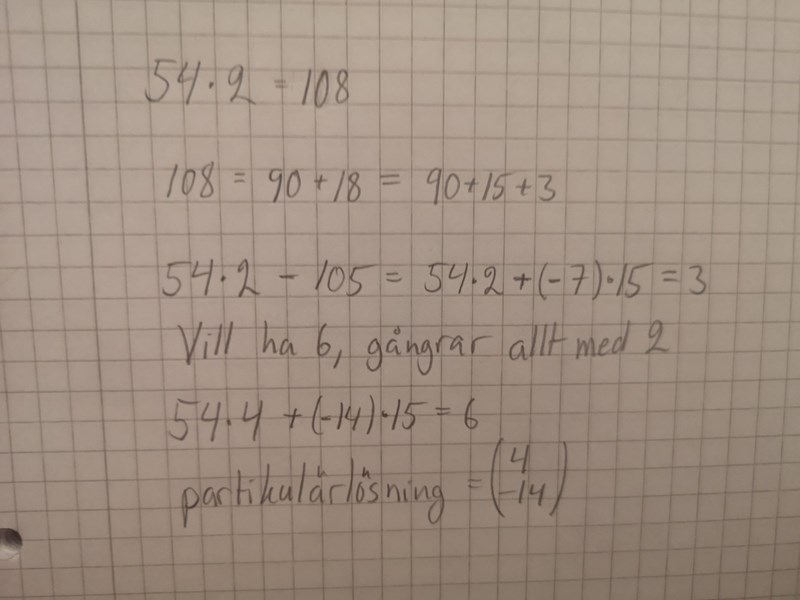 54·2 = 108
108 = 90+18 = 90+15+3
54·2 - 105 = 54·2 +(-7)·15 = 3
Vill ha 6, gångrar allt med 2
54·4 +(-14)·15 = 6
partikulärlösning = (4
-14)